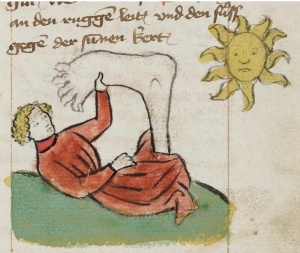 an den ruggen leit vnd den fuſſ
gegē der ſunen kert